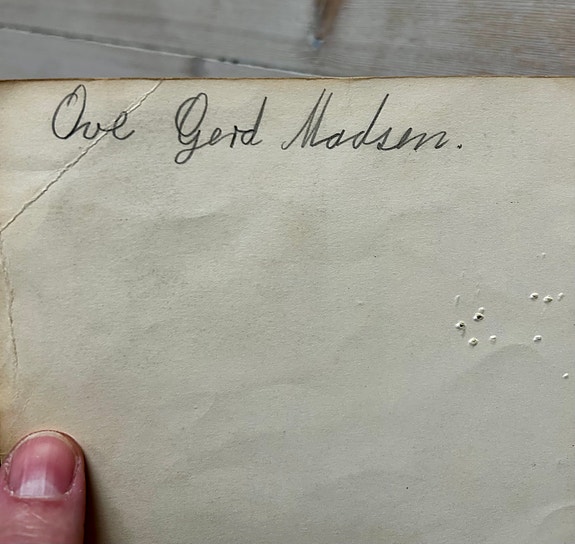 Ove Gerd Madsen.